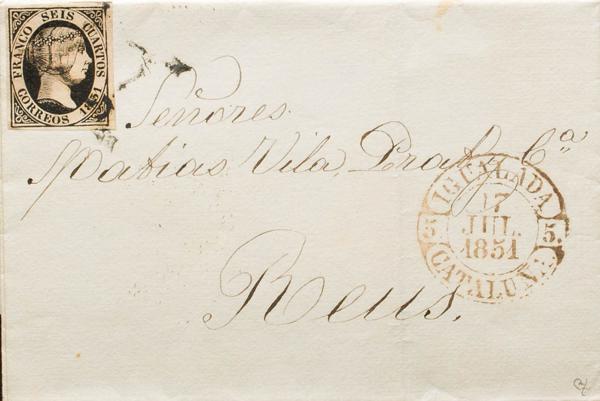 FRANCO SEIS CUARTOS
CORREOS 1851
Señores
Matias Vila Prat y Cª
Reus.
IGUALADA
17
JUL.
1851
5. 5.
CATALUÑA